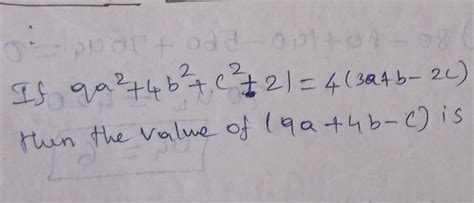 If 9a²+4b²+c²+21=4(3a+b-2c)
then the value of (9a+4b-c) is